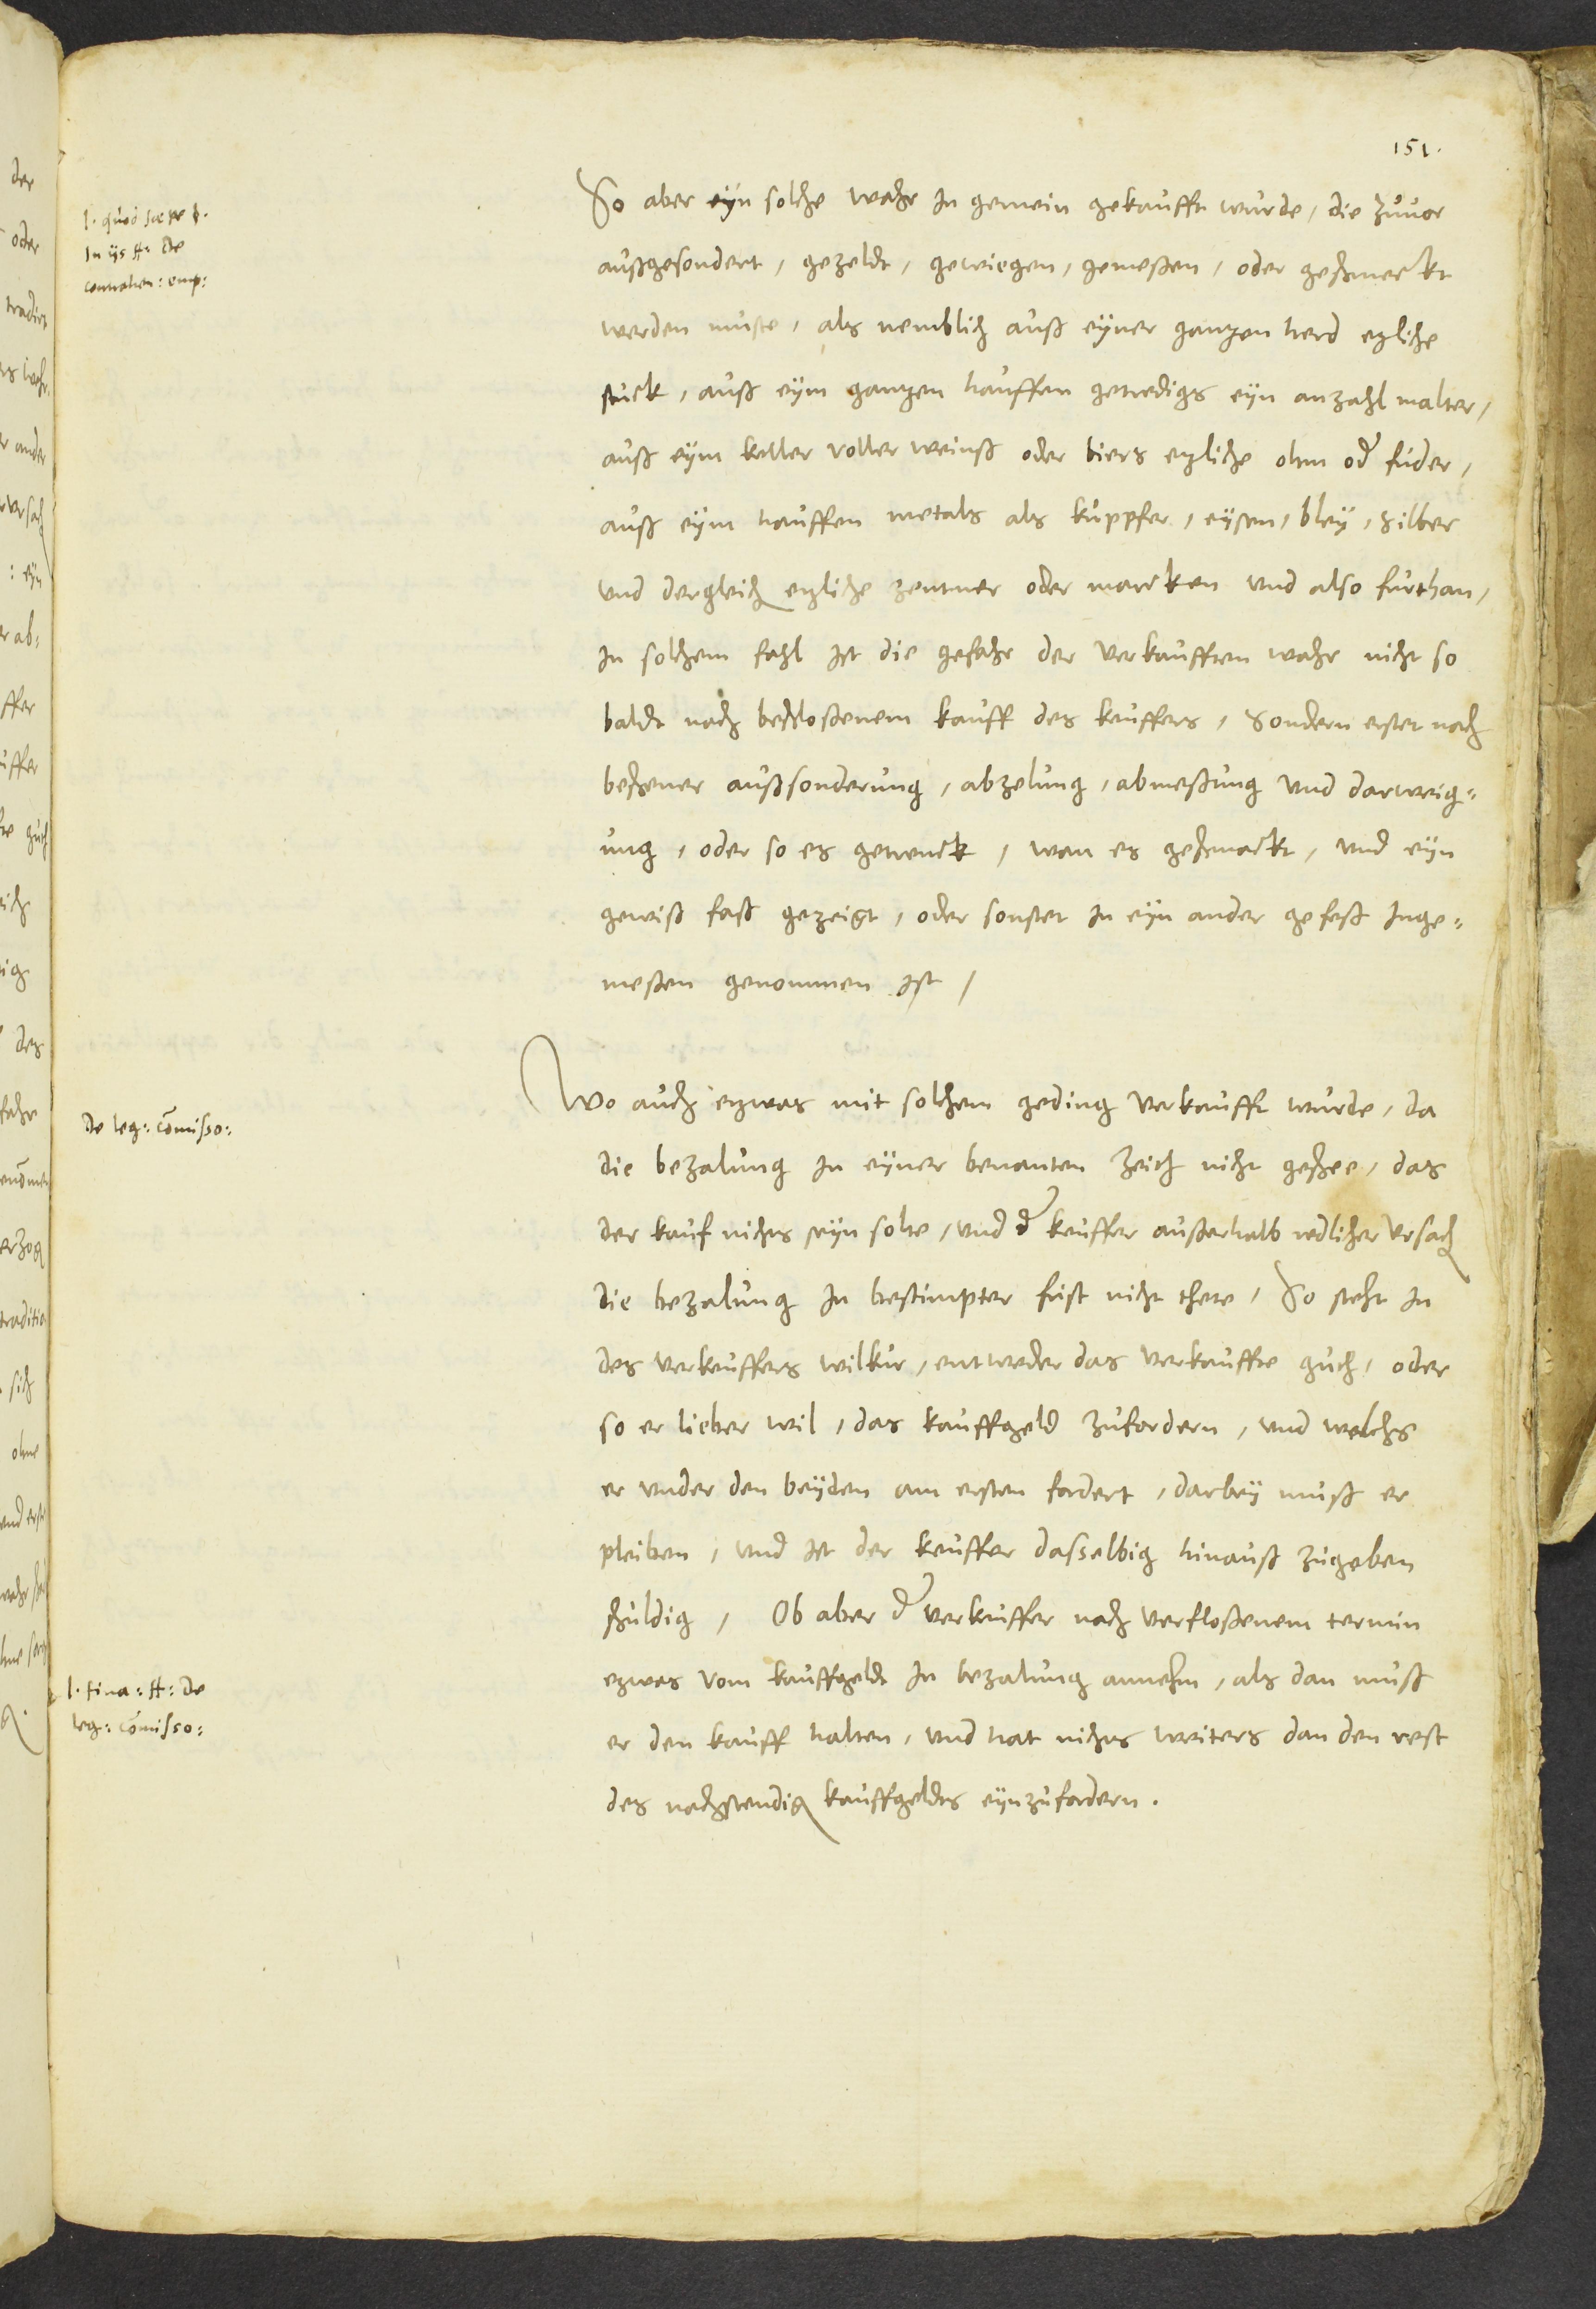 151.
So aber eyn solche wahr in gemein gekaufft wurde, die zuuor
außgesondert, gezeldt, gewiegen, gemeßen, oder geschmeckt
werden muste, als nemblich auß eyner gantzen herd etzliche
stuck, auß eym gantzen hauffen getredigs eyn anzahl malter,
auß eym keller voller weinß oder biers etzliche ohm od fuder,
auß eym hauffen metals als kuppfer, eysen, bley, silber
vnd dergleich etzliche zentner oder marcken vnd also furthan,
in solchem fahl ist die gefahr der verkaufften wahr nicht so
baldt nach beschloßenem kauff des keuffers, sondern erstet nach
beschener außsonderung, abzelung, abmeßung vnd darweig=
ung, oder so es getrenck, wan es geschmackt, vnd eyn
gewiß faß gezeigt, oder sonstet in eyn ander gefeß inge=
meßen genommen ist,
Wo auch etzwas mit solchem geding verkaufft wurde, da
die bezalung in eyner benanten zeith nicht geschee, das
der kauf nichts seyn solte, vnd d keuffer außerhalb redlicher vrsach
die bezalung in bestimpter frist nicht thete, So steht in
des verkeuffers wilkur, entweder das verkauffte guth, oder
so er lieber wil, das kauffgeld zufordern, vnd welchs
er vnder den beyden am ersten fordert, darbey muß er
pleiben, vnd ist der keuffer dasselbig hinauß zugeben
schuldig, Ob aber d verkeuffer nach verfloßenem termin
etzwas vom kauffgeldt in bezalung annehm, als dan muß
er den kauff halten, vnd hat nichts weiters dan den rest
des nachstendig kauffgeldts eynzufordern.
l. quod sæpe §.
In iis ff: De
contrahen: emp:
De leg: comisso:
l. fina: ff: De
leg: comisso:
der
oder
tradirt
ander
vrsach
: eyn
ab=
ffer
uffer
guth
ig
des
fahr
enomen
erzog
traditio
sich
ohne
vnd